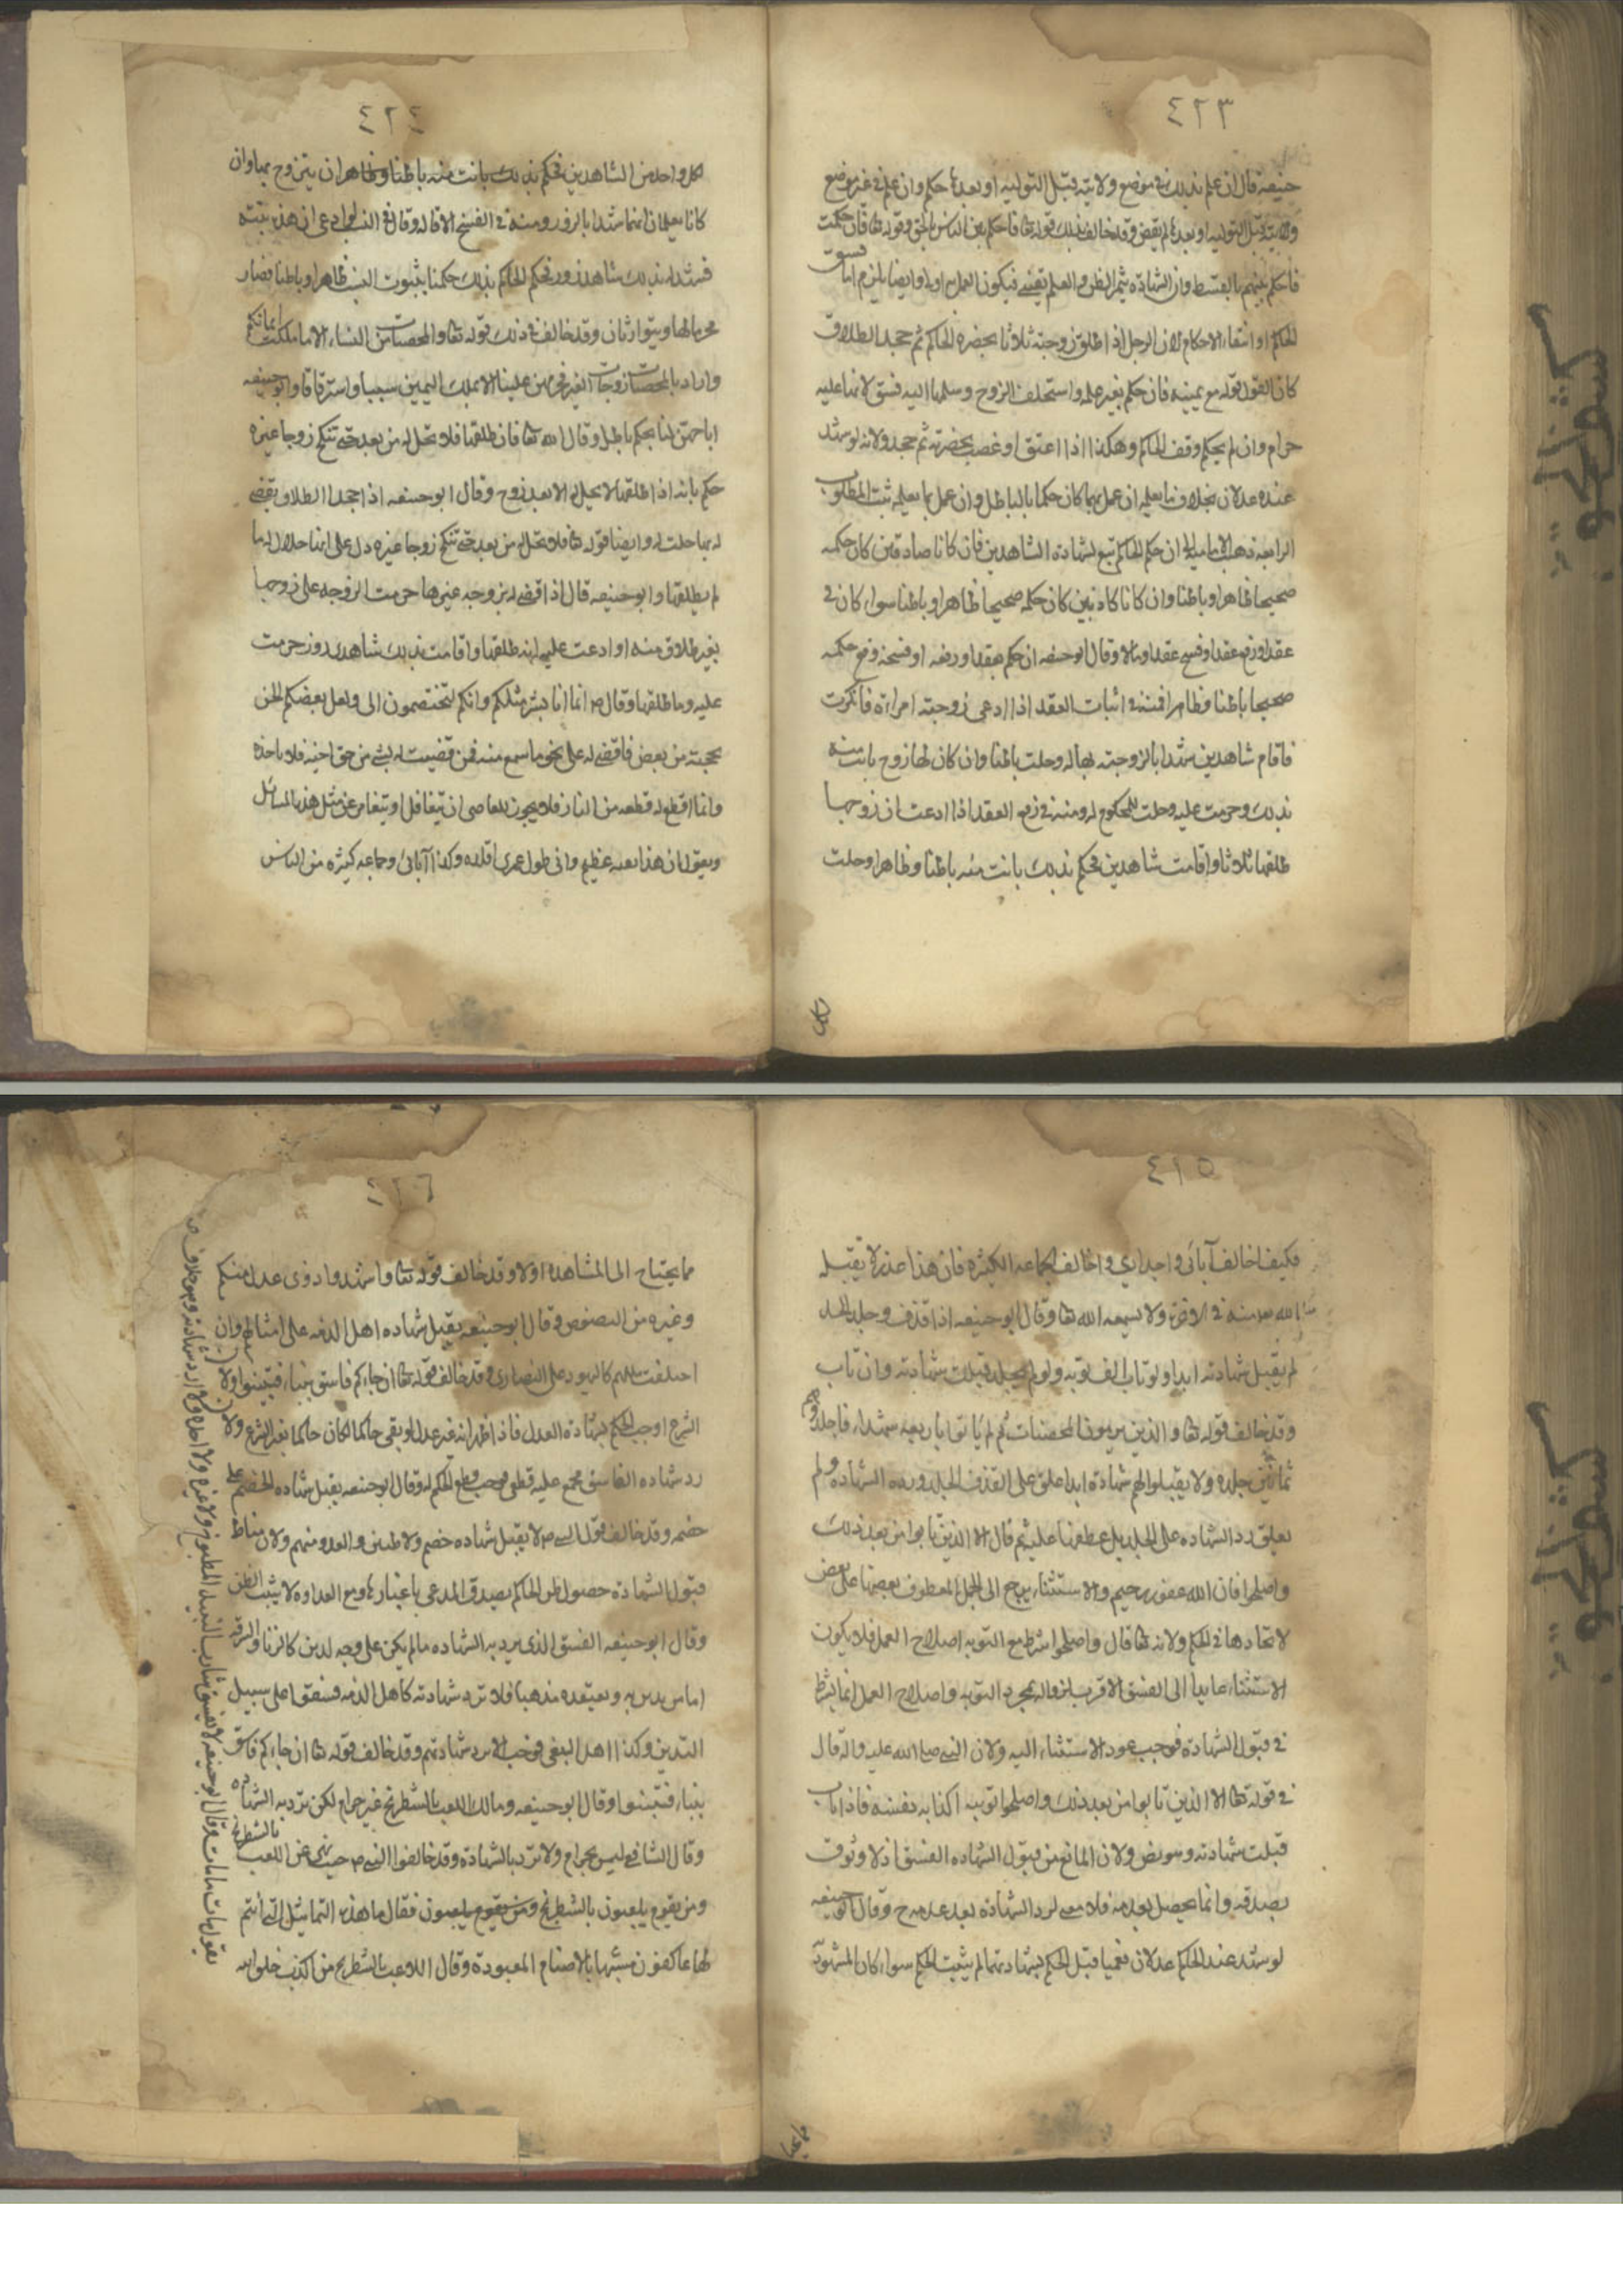 ٤٢٣
حنيفة قال ان علم بذلك في موضع ولايته قبل التولية او بعدها حكم وان علم في غير موضع
ولايته قبل التولية او بعدها لم يقض وقد خالف في ذلك قوله تعا فاحكم بين الناس بالحق وقوله تعا فان حكمت
فاحكم بينهم بالقسط وان الشهادة يثمر الظن والعلم يقيني فيكون العمل به اولى وايضا يلزم اما فسق
الحاكم او انتفاء الاحكام لان الرجل اذا طلق زوجته ثلاثا بحضرة الحاكم ثم جحد الطلاق
كان القول قوله مع يمينه فان حكم بغير علمه واستحلف الزوج وسلمها اليه فسق لانها عليه
حرام وان لم يحكم وقف الحاكم وهكذا اذا اعتق او غصب بحضرته ثم جحد ولانه لو شهد
عنده عدلان بخلاف ما يعلمه ان عمل بهما كان حكما بالباطل وان عمل بما يعلمه ثبت المطلوب
الرابعه ذهب الاماميه الى ان حكم الحاكم تبع لشهادة الشاهدين فان كانا صادقين كان حكمه
صحيحا ظاهرا وباطنا وان كانا كاذبين كان حكمه صحيحا ظاهرا وباطنا سواء كان في
عقد او رفع عقد او فسخ عقد او مالا وقال ابو حنيفه ان حكم بعقد او رفعه او فسخه وقع حكمه
صحيحا باطنا وظاهرا فمنه في اثبات العقد اذا ادعى زوجته امراة فانكرت
فاقام شاهدين شهدا بالزوجته لها له وحلت باطنا وان كان لها زوج بانت منه
بذلك وحرمت عليه وحلت للمحكوم له ومنه في رفع العقد اذا ادعت ان زوجها
طلقها ثلاثا واقامت شاهدين فحكم بذلك بانت منه باطنا وظاهرا وحلت
لكل
٤٢٤
لكل واحد من الشاهدين فحكم بذلك بانت منه باطنا وظاهرا ان يتزوج بها وان
كانا يعلمان انهما شهدا بالزور ومنه في الفسخ الاقاله وقال في النسب لو ادعى ان هذه بنته
فشهد له بذلك شاهدا زور فحكم الحاكم بذلك حكمنا بثبوت النسب ظاهرا وباطنا فصار
محرما لها ويتوارثان وقد خالف في ذلك قوله تعا والمحصنات من النساء الا ما ملكت ايمانكم
واراد بالمحصنات زوجات الغير فحرمهن علينا الا بملك اليمين سبيا واسترقاقا وابو حنيفه
اباحهن لنا بحكم باطل وقال الله تعا فان طلقها فلا تحل له من بعد حتى تنكح زوجا غيره
حكم بانه اذا طلقها لا يحل له الا بعد زوج وقال ابو حنيفه اذا جحد الطلاق يقضى
له بها حلت له وايضا قوله تعا فلا تحل له من بعد حتى تنكح زوجا غيره دل على انها حلال له ما
لم يطلقها وابو حنيفه قال اذا قضى له بزوجه غيرها حرمت الزوجه على زوجها
بغير طلاق منه او ادعت عليه انه طلقها واقامت بذلك شاهدى زور حرمت
عليه وما طلقها وقال ص انما انا بشر مثلكم وانكم لتختصمون الى ولعل بعضكم الحن
بحجته من بعض فاقضى له على نحو ما سمع منه فمن قضيت له بشئ من حق اخيه فلا ياخذه
وانما اقطع له قطعه من النار فلا يجوز للعاصى ان يتغافل او يتعامى عن مثل هذه المسائل
ويقول ان هذا فقيه عظيم وانى طول عمرى اقلده وكذا آبائى وجماعه كثيره من الناس
٤١٥
فكيف اخالف آبائى واجدادى واخالف الجماعه الكثيره فان هذا عذر لا يقبله
الله منه في الاخره ولا يسمعه الله تعا وقال ابو حنيفه اذا قذف وجلد الحد
لم يقبل شهادته ابدا ولو تاب الف توبه ولو لم يجلد قبلت شهادته وان تاب
وقد خالف قوله تعا والذين يرمون المحصنات ثم لم ياتوا باربعه شهداء فاجلدوهم
ثمانين جلده ولا يقبلوا لهم شهادة ابدا علق على القذف الجلد ورد الشهاده ولم
يعلق رد الشهاده على الجلد بل عطفها عليه ثم قال الا الذين تابوا من بعد ذلك
واصلحوا فان الله غفور رحيم والاستثناء يرجع الى الجمل المعطوف بعضها على بعض
لاتحادها في الحكم ولانه تعا قال واصلحوا شرط مع التوبه اصلاح العمل فلا يكون
الاستثناء عايدا الى الفسق الاقرب لزواله بمجرد التوبه واصلاح العمل انما يشترط
في قبول الشهادة فوجب عود الاستثناء اليه ولان النبى صلى الله عليه واله قال
في قوله تعا الا الذين تابوا من بعد ذلك واصلحوا توبته اكذابه نفسه فاذا تاب
قبلت شهادته وهو نص ولان المانع من قبول الشهاده الفسق اذ لا وثوق
بصدقه وانما يحصل بعدمه فلا معنى لرد الشهادة بعد عدمه ح وقال ابو حنيفه
لو شهد عند الحاكم عدلان فعميا قبل الحكم بشهادتهما لم يثبت الحكم سواء كان المشهود
مما يحتاج
٤١٦
مما يحتاج الى المشاهده اولا وقد خالف قوله تعا واشهدوا ذوى عدل منكم
وغيره من النصوص وقال ابو حنيفه يقبل شهاده اهل الذمه على امثالهم وان
اختلفت مللهم كاليهود على النصارى وقد خالف قوله تعا ان جاءكم فاسق بنباء فتبينوا ولان
الشرع اوجب الحكم بشهادة العدل فاذا ظهر انه غير عدل لو بقى حاكما لكان حاكما بغير الشرع ولان
رد شهاده الفاسق مجمع عليه قطعى فوجب الحكم له وقال ابو حنيفه يقبل شهاده الخصم على
خصمه وقد خالف قول النبى ص لا يقبل شهاده خصم ولا ظنين والعدو متهم ولان مناط
قبول الشهادة حصول ظن الحاكم بصدق المدعى باعتبارها ومع العداوه لا يثبت الظن
وقال ابو حنيفه الفسق الذى يرد به الشهاده مالم يكن على وجه لدين كالزنا والسرقه
اما من يدين به ويعتقده مذهبا فلا ترد شهادته كاهل الذمه فسقوا على سبيل
التدين وكذا اهل البغى فوجب الا يرد شهادتهم وقد خالف قوله تعا ان جاءكم فاسق
بنباء فتبينوا وقال ابو حنيفه ومالك اللعب بالشطرنج غير حرام لكن ترد به الشهاده
وقال الشافعى ليس بحرام ولا ترد بالشهادة وقد خالفوا النبى ص حيث نهى عن اللعب بالشطرنج
ومن يقوم يلعبون بالشطرنج فقال ما هذه التماثيل التى أنتم
لها عاكفون شبهها بالاصنام المعبوده وقال اللاعب بالشطرنج من اكذب خلق الله
يقول مات ما مات وقال ابو حنيفه لا يفسق شارب النبيذ المطبوخ ولا غيره ولا احده ولا ارد شهادته وهو خلاف